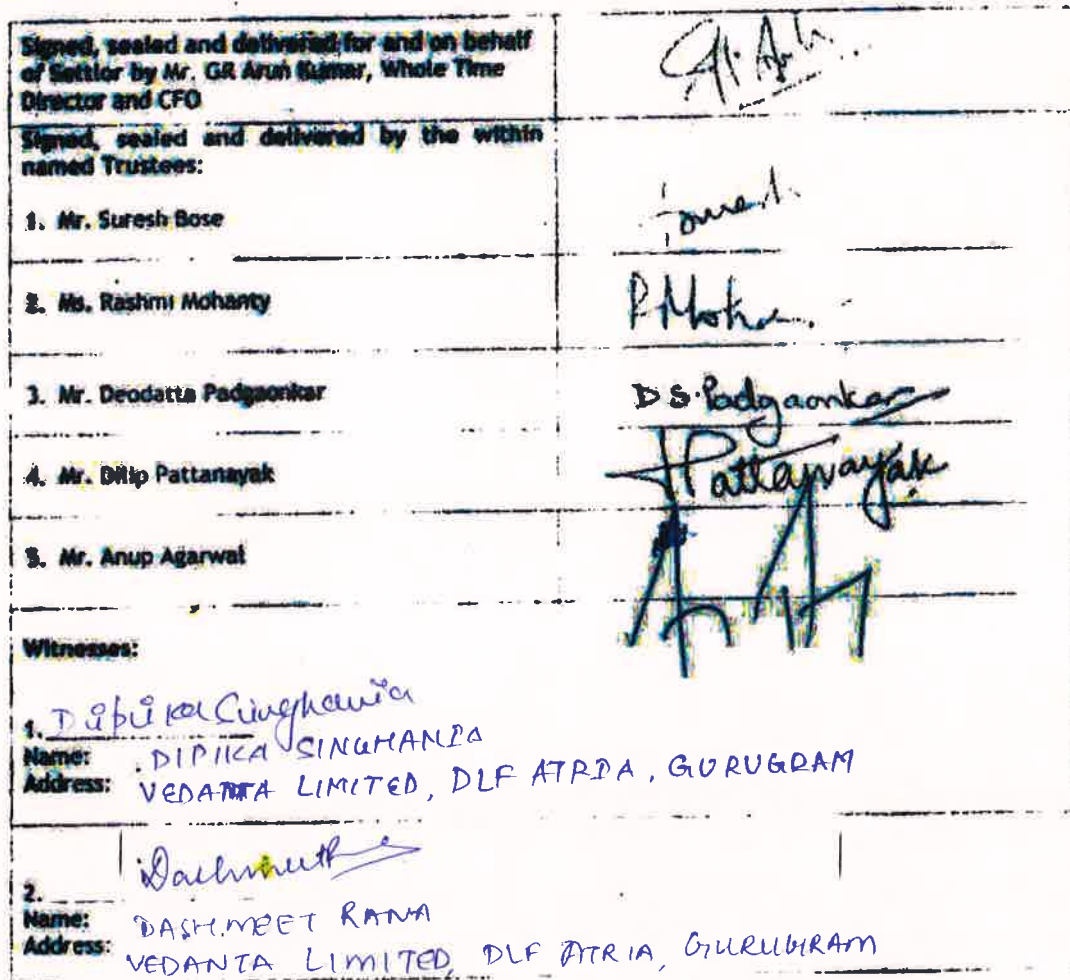 Signed, sealed and delivered for and on behalf
of Settlor by Mr. GR Arun Kumar, Whole Time
Director and CFO
Signed, sealed and delivered by the within
named Trustees:
1. Mr. Suresh Bose
2. Ms. Rashmi Mohanty
3. Mr. Deodatta Padgaonkar
D S Padgaonkar
4. Mr. Dilip Pattanayak
Pattanayak
5. Mr. Anup Agarwal
Witnesses:
1. Dipika Singhania
Name: DIPIKA SINGHANIA
Address: VEDANTA LIMITED, DLF ATRIA, GURUGRAM
2.
Name: DASHMEET RANA
Address: VEDANTA LIMITED, DLF ATRIA, GURUGRAM